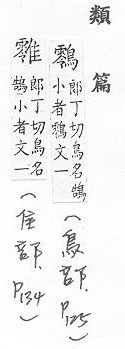 類篇
䴇 郎丁切鳥名鵠
小者䴇文一
(鳥部.P125)
䨩 郎丁切鳥名
鵠小者文一
(隹部.P134)